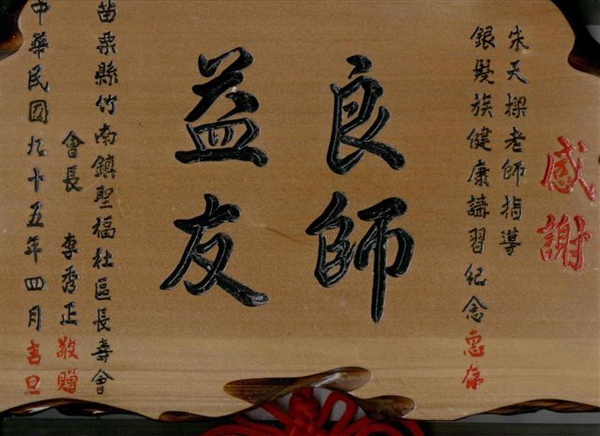 感謝
朱天樑老師指導
銀髮族健康講習紀念惠存
良師
益友
苗栗縣竹南鎮聖福社區長壽會
會長 李秀正敬贈
中華民國九十五年四月吉旦